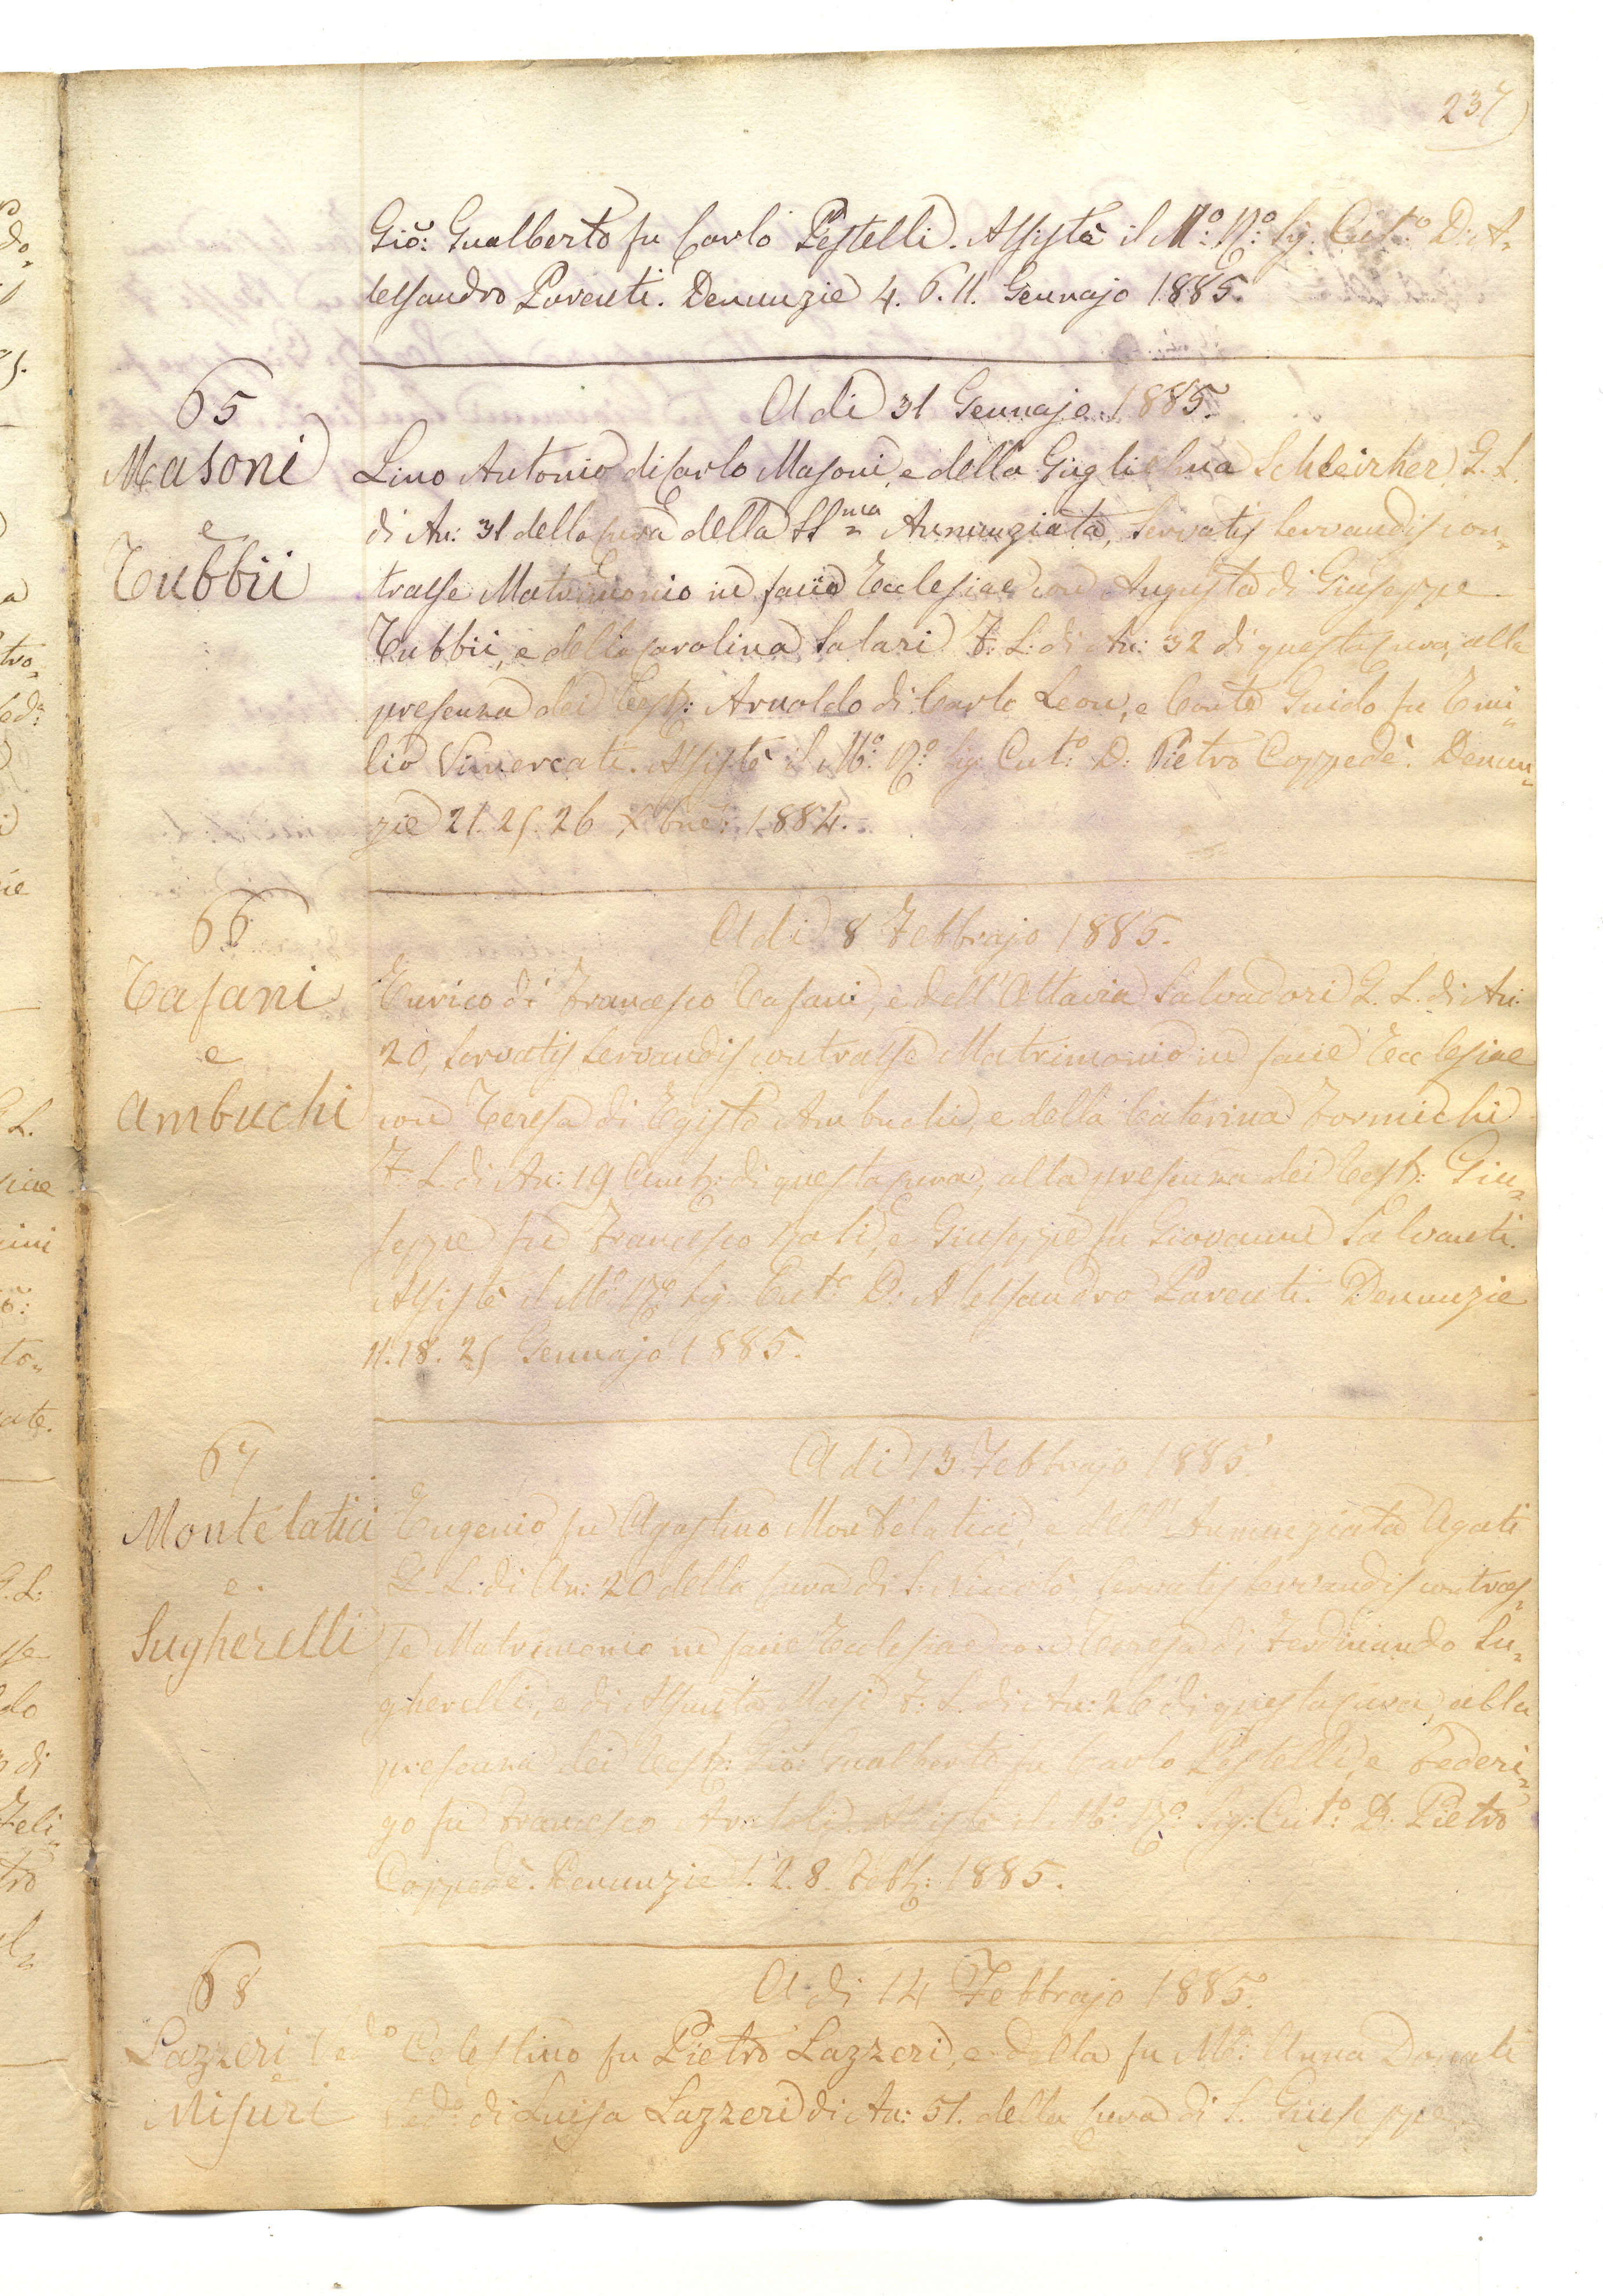 237
Gio: Gualberto fu Carlo Pestelli. Assistè il M:o R:o Sig. Cut:o D: A=
lessandro Parenti. Denunzie 4. 6. 11. Gennajo 1885.
65
A di 31 Gennajo 1885.
Masoni
e
Tubbii
Lino Antonio di Carlo Masoni, e della Guglielma Schleirher G. L.
di An: 31 della Cura della SS.ma Annunziata, Servatis Servandis con=
trasse Matrimonio in facie Ecclesiae con Augusta di Giuseppe
Tubbii, e della Carolina Salari F: L: di An: 32 di questa Cura, alla
presenza dei Test: Arnoldo di Carlo Leon, e Conte Guido fu Emi=
lio Vimercati. Assistè il M:o R:o Sig. Cut:o D: Pietro Coppedè. Denun=
zie 21. 25. 26 Xbre: 1884.
66
A di 8 Febbrajo 1885.
Tafani
e
Ambuchi
Enrico di Francesco Tafani, e dell' Ottavia Salvadori G. L. di An:
20, Servatis Servandis contrasse Matrimonio in facie Ecclesiae
con Teresa di Egisto Ambuchi, e della Caterina Formichi
F: L. di An: 19 di questa Cura, alla presenza dei Test: Giu=
seppe fu Francesco e Giuseppe fu Giovanni Salvanti.
Assistè il M:o R:o Sig. Cut:o D: Alessandro Parenti. Denunzie
11. 18. 25 Gennajo 1885.
67
A di 13 Febbrajo 1885.
Montelatici
e
Sugherelli
Eugenio fu Agostino Montelatici, e dell' Annunziata Agati
G. L: di An: 20 della Cura di S: Niccolò Servatis Servandis contras=
se Matrimonio in facie Ecclesiae con Teresa di Ferdinando Su=
gherelli, e di Assunta Masi F: L. di An: 26 di questa Cura, alla
presenza dei Test: Gio: Gualberto fu Carlo Pestelli, e Federi=
go fu Francesco Assistè il M:o R:o Sig: Cut:o D: Pietro
Coppedè. Denunzie 1. 2. 8. Febb: 1885.
68
A di 14 Febbrajo 1885.
Lazzeri Ved:o
e
Misuri
Celestino fu Pietro Lazzeri, e della fu M:a Anna Donati
Ved:o di Luisa Lazzeri di An: 51. della Cura di S. Giuseppe